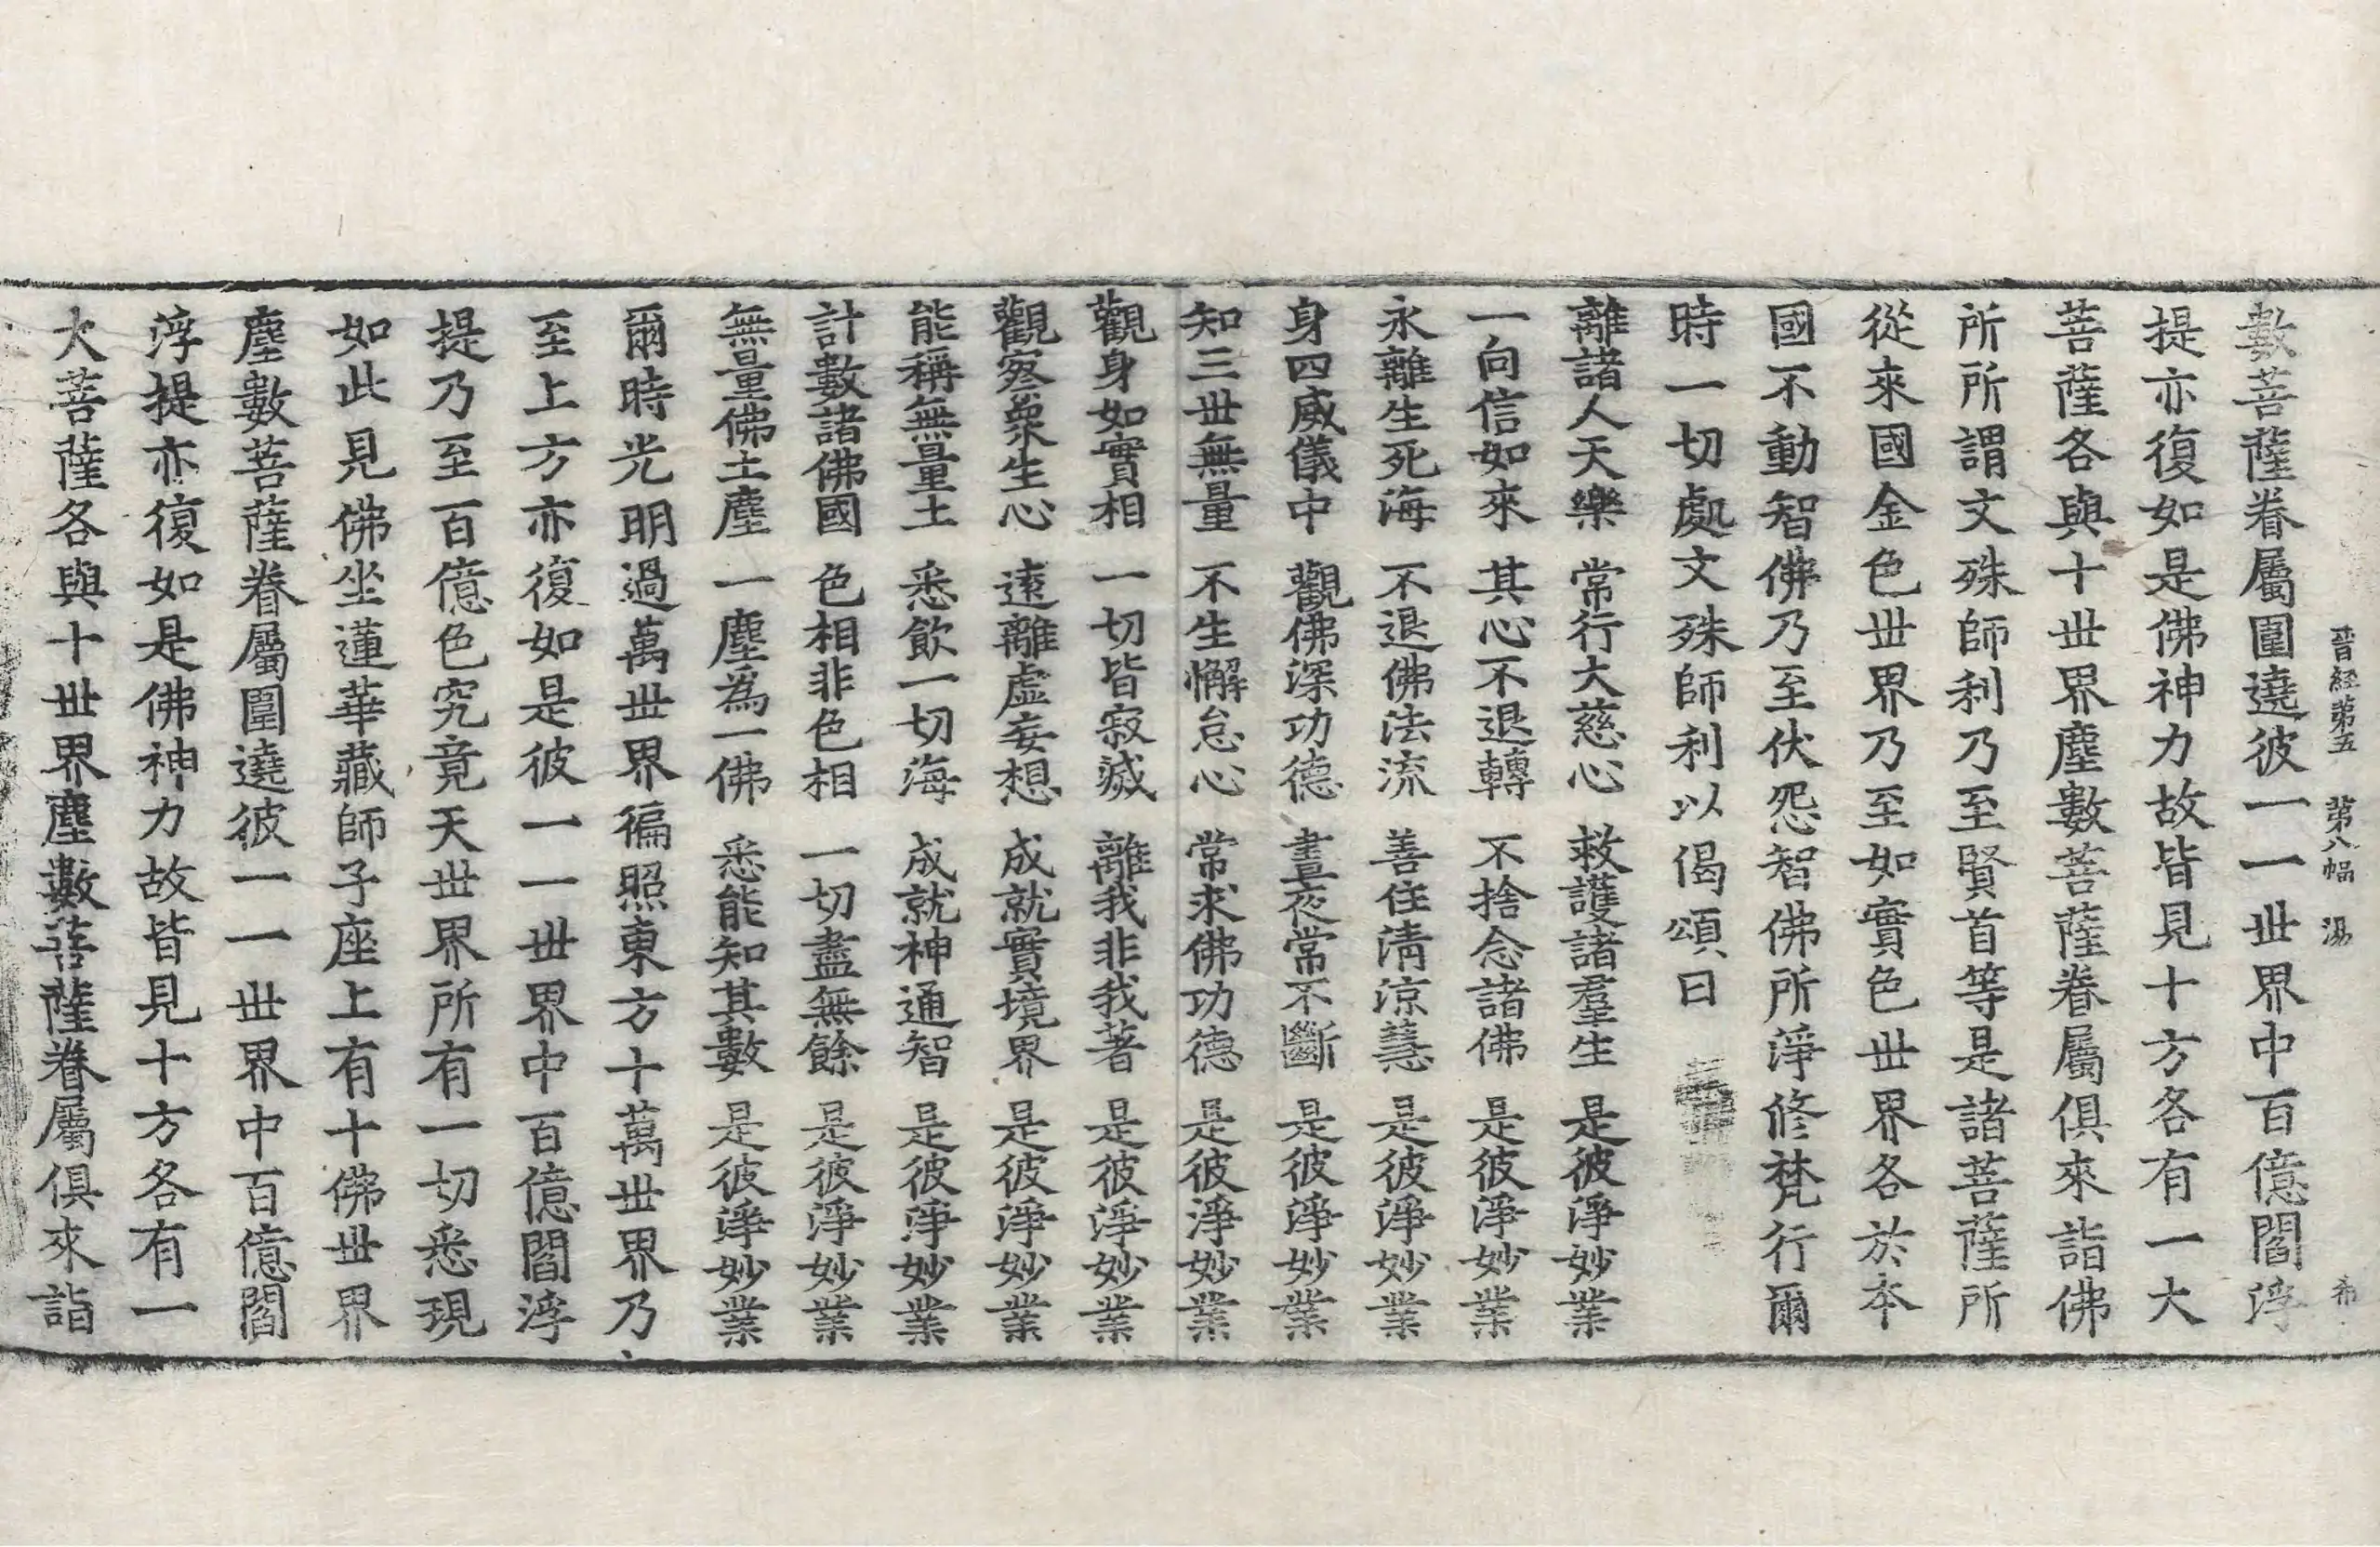 晋経第五 第八幅 湯 希
數菩薩眷屬圍遶彼一一世界中百億閻浮
提亦復如是佛神力故皆見十方各有一大
菩薩各與十世界塵數菩薩眷屬俱來詣佛
所所謂文殊師利乃至賢首等是諸菩薩所
從來國金色世界乃至如實色世界各於本
國不動智佛乃至伏怨智佛所淨修梵行爾
時一切處文殊師利以偈頌曰
離諸人天樂 常行大慈心 救護諸羣生 是彼淨妙業
一向信如來 其心不退轉 不捨念諸佛 是彼淨妙業
永離生死海 不退佛法流 善住清涼慧 是彼淨妙業
身四威儀中 觀佛深功德 晝夜常不斷 是彼淨妙業
知三世無量 不生懈怠心 常求佛功德 是彼淨妙業
觀身如實相 一切皆寂滅 離我非我著 是彼淨妙業
觀察衆生心 遠離虛妄想 成就實境界 是彼淨妙業
能稱無量土 悉飲一切海 成就神通智 是彼淨妙業
計數諸佛國 色相非色相 一切盡無餘 是彼淨妙業
無量佛土塵 一塵爲一佛 悉能知其數 是彼淨妙業
爾時光明過萬世界徧照東方十萬世界乃
至上方亦復如是彼一一世界中百億閻浮
提乃至百億色究竟天世界所有一切悉現
如此見佛坐蓮華藏師子座上有十佛世界
塵數菩薩眷屬圍遶彼一一世界中百億閻
浮提亦復如是佛神力故皆見十方各有一
大菩薩各與十世界塵數菩薩眷屬俱來詣